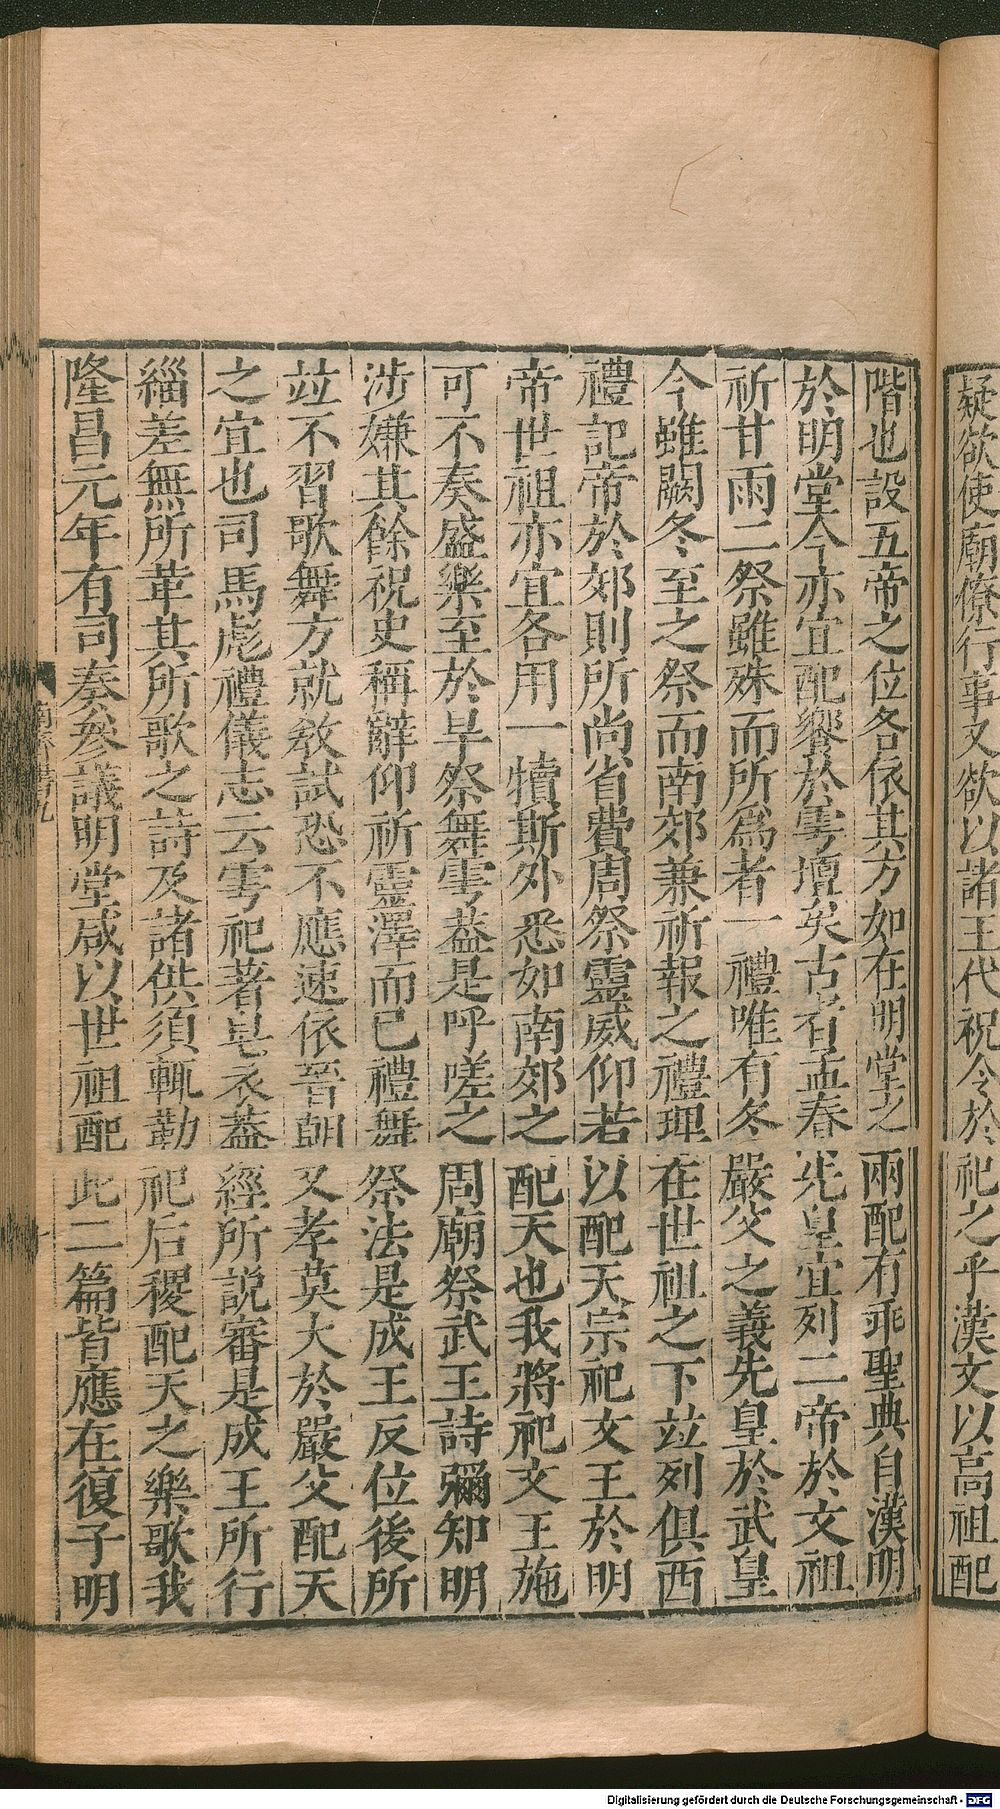 疑欲使廟僚行事又欲以諸王代祝令於祀之乎漢文以高祖配
階也設五帝之位各依其方如在明堂之兩配有乖聖典自漢明
於明堂今亦宜配饗於雩壇矣古者孟春先皇宜列二帝於文祖
祈甘雨二祭雖殊而所爲者一禮唯有冬嚴父之義先皇於武皇
今雖闕冬至之祭而南郊兼祈報之禮理在世祖之下竝列俱西
禮記帝於郊則所尚省費周祭靈威仰若以配天宗祀文王於明
帝世祖亦宜各用一犢斯外悉如南郊之配天也我將祀文王施
可不奏盛樂至於旱祭舞雩葢是呼嗟之周廟祭武王詩彌知明
涉嫌其餘祝史稱辭仰祈靈澤而已禮舞祭法是成王反位後所
竝不習歌舞方就敎試恐不應速依晉朝又孝莫大於嚴父配天
之宜也司馬彪禮儀志云雩祀著皁衣葢經所説審是成王所行
緇差無所革其所歌之詩及諸供須輒勒祀后稷配天之樂歌我
隆昌元年有司奏參議明堂咸以世祖配此二篇皆應在復子明
Digitalisierung gefördert durch die Deutsche Forschungsgemeinschaft - DFG